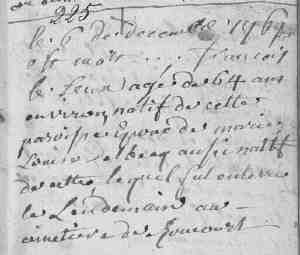 225
le 6 de decembre 1764
est mort .... francois
le jeune agé de 64 ans
environ natif de cette
paroisse epoux de marie
Louise aussi natif
de cette lequel fut enterré
le Lendemain au
cimetiere de Joucourt